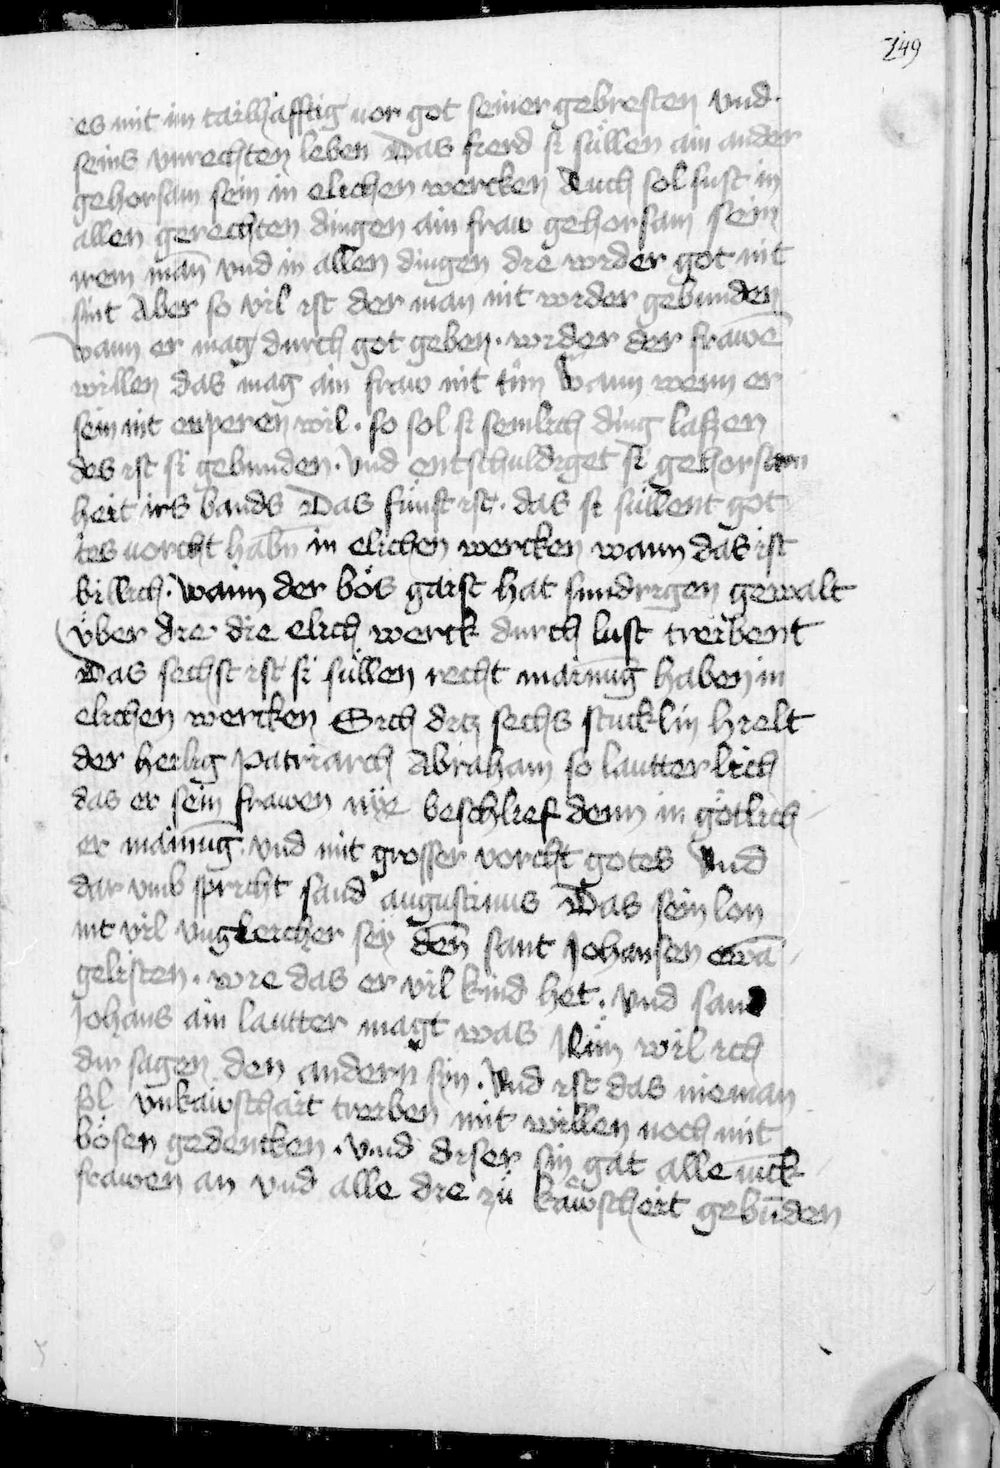 249
es mit im tailhafftig vor got seiner gebresten vnd
seins vnrechten leben Das fierd si süllen ain ander
gehorsam sein in elichen wercken Auch sol sust in
allen gerechten dingen ain fraw gehorsam sein
irem man̄ vnd in allen dingen die wider got nit
sint Aber so vil ist der man nit wider gebunden
wann er mag durch got geben. wider der frawē
willen das mag ain fraw nit tůn Wann wenn er
sein nit enperen wil. so sol si semlich ding lassen
des ist si gebunden. Vnd entschuldiget si gehorsam
heit irs bands Das fünft ist. das si süllent got
tes vorcht habn̄ in elichen wercken wann das ist
billich. Wann der bös gaist hat sundrigen gewalt
über die die elich werck durch lust treibent
Das sechst ist si süllen recht mainūg haben in
elichen wercken Sich ditz sechs stucklin hielt
der heilig Patriarch Abraham so lautterlich
das er sein frawen nÿe beschlief denn in götlich
er mainūg vnd mit grosser vorcht gotes Vnd
dar vmb spricht sand augustinus Das sein lon
nit vil vngleicher seÿ den̄ sant Johansen ewā
gelisten. wie das er vil kind het. Vnd sand
Johans ain lautter magt was Nun wil ich
dir sagen den andern sin. Vnd ist das nieman
sol vnkäwschait treiben mit willen noch mit
bösen gedencken. Vnd diser sin gat alle
frawen an vnd alle die zů käwscheit gebūden